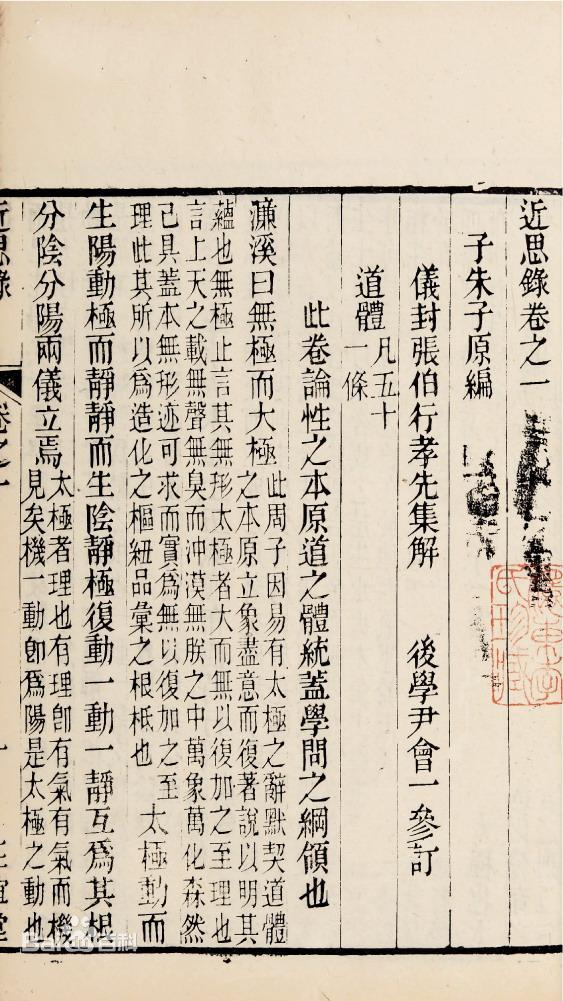 近思錄卷之一
子朱子原編
儀封張伯行孝先集解 後學尹會一參訂
道體凡五十一條
此卷論性之本原道之體統蓋學問之綱領也
濂溪曰無極而大極
此周子因易有太極之辭默契道體
之本原立象盡意而復著說以明其
蘊也無極止言其無形太極者大而無以復加之至理也
言上天之載無聲無臭而沖漠無朕之中萬象萬化森然
已具蓋本無形迹可求而實為無以復加之至
理此其所以為造化之樞紐品彙之根柢也
太極動而
生陽動極而靜靜而生陰靜極復動一動一靜互爲其根
分陰分陽兩儀立焉
太極者理也有理卽有氣有氣而機
見矣機一動卽爲陽是太極之動也
近思錄 卷之一 一 正誼堂
Baidu百科